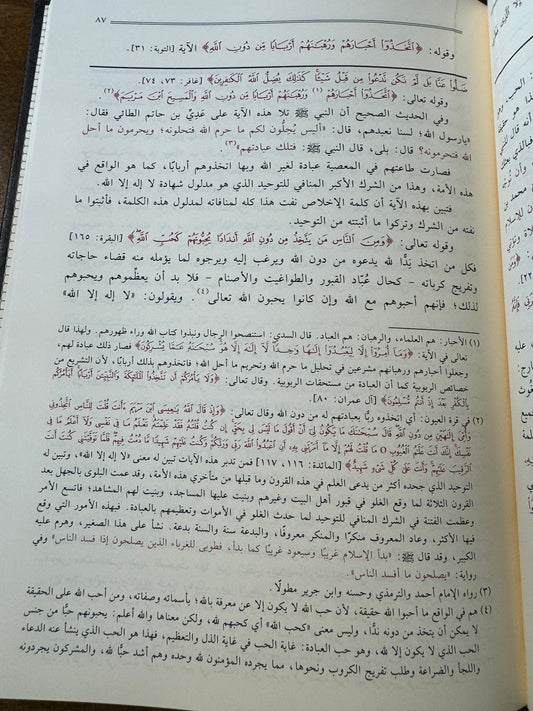 ٨٧
وقوله: ﴿ٱتَّخَذُوٓا۟ أَحْبَارَهُمْ وَرُهْبَـٰنَهُمْ أَرْبَابًا مِّن دُونِ ٱللَّهِ﴾ الآية [التوبة: ٣١].
ضَلُّوا۟ عَنَّا بَل لَّمْ نَكُن نَّدْعُوا۟ مِن قَبْلُ شَيْـًٔا كَذَٰلِكَ يُضِلُّ ٱللَّهُ ٱلْكَـٰفِرِينَ﴾ [غافر: ٧٣، ٧٤].
وقوله تعالى: ﴿ٱتَّخَذُوٓا۟ أَحْبَارَهُمْ (١) وَرُهْبَـٰنَهُمْ أَرْبَابًا مِّن دُونِ ٱللَّهِ وَٱلْمَسِيحَ ٱبْنَ مَرْيَمَ﴾(٢)
وفي الحديث الصحيح أن النبي ﷺ تلا هذه الآية على عَدِيّ بن حاتم الطائي فقال:
«يارسول الله؛ لسنا نعبدهم، قال: «أليس يُحلُّون لكم ما حرم الله فتحلونه؛ ويحرمون ما أحل
الله فتحرمونه؟ قال: بلى، قال النبي ﷺ: فتلك عبادتهم»(٣).
فصارت طاعتهم في المعصية عبادة لغير الله وبها اتخذوهم أربابًا، كما هو الواقع في
هذه الأمة، وهذا من الشرك الأكبر المنافي للتوحيد الذي هو مدلول شهادة لا إله إلا الله.
فتبين بهذه الآية أن كلمة الإخلاص نفت هذا كله لمنافاته لمدلول هذه الكلمة، فأثبتوا ما
نفته من الشرك وتركوا ما أثبتته من التوحيد.
وقوله تعالى: ﴿وَمِنَ ٱلنَّاسِ مَن يَتَّخِذُ مِن دُونِ ٱللَّهِ أَندَادًا يُحِبُّونَهُمْ كَحُبِّ ٱللَّهِ﴾ [البقرة: ١٦٥]
فكل من اتخذ نِدًّا لله يدعوه من دون الله ويرغب إليه ويرجوه لما يؤمله منه قضاء حاجاته
وتفريج كرباته – كحال عُبّاد القبور والطواغيت والأصنام – فلا بد أن يعظّموهم ويحبوهم
لذلك؛ فإنهم أحبوهم مع الله وإن كانوا يحبون الله تعالى(٤). ويقولون: «لا إله إلا الله»
(١) الأحبار: هم العلماء، والرهبان: هم العباد. قال السدي: استنصحوا الرجال ونبذوا كتاب الله وراء ظهورهم. ولهذا قال
تعالى في الآية: ﴿وَمَآ أُمِرُوٓا۟ إِلَّا لِيَعْبُدُوٓا۟ إِلَـٰهًا وَٰحِدًا لَّآ إِلَـٰهَ إِلَّا هُوَ سُبْحَـٰنَهُۥ عَمَّا يُشْرِكُونَ﴾ فصار ذلك عبادة لهم،
وجعلوا أحبارهم ورهبانهم مشرعين في تحليل ما حرم الله وتحريم ما أحل الله؛ فاتخذوهم بذلك أربابًا، لأن التشريع من
خصائص الربوبية كما أن العبادة من مستحقات الربوبية. وقال تعالى: ﴿وَلَا يَأْمُرَكُمْ أَن تَتَّخِذُوا۟ ٱلْمَلَـٰٓئِكَةَ وَٱلنَّبِيِّـۧنَ أَرْبَابًا أَيَأْمُرُكُم
بِٱلْكُفْرِ بَعْدَ إِذْ أَنتُم مُّسْلِمُونَ﴾ [آل عمران: ٨٠].
(٢) في قرة العيون: أي اتخذوه ربًّا بعبادتهم له من دون الله وقال تعالى: ﴿وَإِذْ قَالَ ٱللَّهُ يَـٰعِيسَى ٱبْنَ مَرْيَمَ ءَأَنتَ قُلْتَ لِلنَّاسِ ٱتَّخِذُونِى
وَأُمِّىَ إِلَـٰهَيْنِ مِن دُونِ ٱللَّهِ قَالَ سُبْحَـٰنَكَ مَا يَكُونُ لِىٓ أَنْ أَقُولَ مَا لَيْسَ لِى بِحَقٍّ إِن كُنتُ قُلْتُهُۥ فَقَدْ عَلِمْتَهُۥ تَعْلَمُ مَا فِى نَفْسِى وَلَآ أَعْلَمُ مَا فِى
نَفْسِكَ إِنَّكَ أَنتَ عَلَّـٰمُ ٱلْغُيُوبِ ۝ مَا قُلْتُ لَهُمْ إِلَّا مَآ أَمَرْتَنِى بِهِۦٓ أَنِ ٱعْبُدُوا۟ ٱللَّهَ رَبِّى وَرَبَّكُمْ وَكُنتُ عَلَيْهِمْ شَهِيدًا مَّا دُمْتُ فِيهِمْ فَلَمَّا تَوَفَّيْتَنِى كُنتَ أَنتَ
ٱلرَّقِيبَ عَلَيْهِمْ وَأَنتَ عَلَىٰ كُلِّ شَىْءٍ شَهِيدٌ﴾ [المائدة: ١١٦، ١١٧] فمن تدبر هذه الآيات تبين له معنى «لا إله إلا الله»، وتبين له
التوحيد الذي جحده أكثر من يدعي العلم في هذه القرون وما قبلها من متأخري هذه الأمة، وقد عمت البلوى بالجهل بعد
القرون الثلاثة لما وقع الغلو في قبور أهل البيت وغيرهم وبنيت عليها المساجد، وبنيت لهم المشاهد؛ فاتسع الأمر
وعظمت الفتنة في الشرك المنافي للتوحيد لما حدث الغلو في الأموات وتعظيمهم بالعبادة. فبهذه الأمور التي وقع
فيها الأكثر، وعاد المعروف منكرًا والمنكر معروفًا، والبدعة سنة والسنة بدعة. نشأ على هذا الصغير، وهرم عليه
الكبير، وقد قال ﷺ: «بدأ الإسلام غريبًا وسيعود غريبًا كما بدأ، فطوبى للغرباء الذين يصلحون إذا فسد الناس» وفي
رواية: «يصلحون ما أفسد الناس».
(٣) رواه الإمام أحمد والترمذي وحسنه وابن جرير مطولًا.
(٤) هم في الواقع ما أحبوا الله حقيقة، لأن حب الله لا يكون إلا عن معرفة بالله؛ بأسمائه وصفاته، ومن أحب الله على الحقيقة
لا يمكن أن يتخذ من دونه ندًّا، وليس معنى «كحب الله» أي كحبهم لله، ولكن معناها والله أعلم: يحبونهم حبًّا من جنس
الحب الذي لا يكون إلا لله، وهو حب العبادة: غاية الحب في غاية الذل والتعظيم، فهذا هو الحب الذي ينشأ عنه الدعاء
واللجأ والضراعة وطلب تفريج الكروب ونحوها، مما يجرده المؤمنون لله وحده وهم أشد حبًّا لله، والمشركون يجردونه